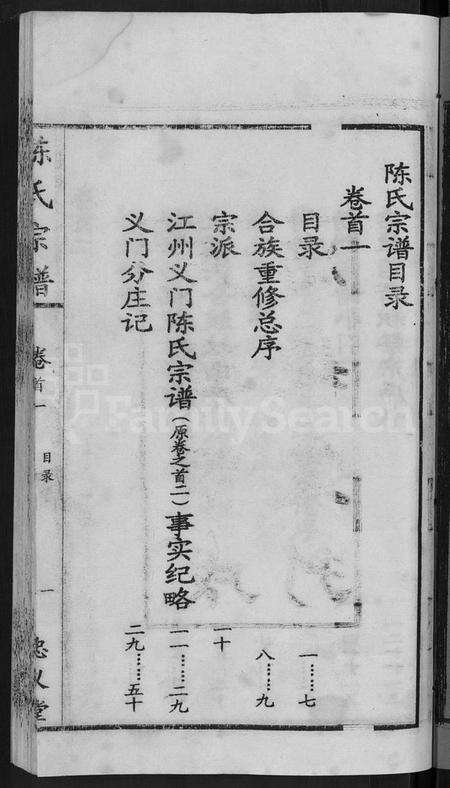 陈氏宗谱目录
卷首一
目录 一……七
合族重修总序 八……九
宗派 十
江州义门陈氏宗谱(原卷之首二)事实纪略 一一……二九
义门分庄记 二九……五十
陈氏宗谱
卷首一
目录
一
忠义堂
FamilySearch